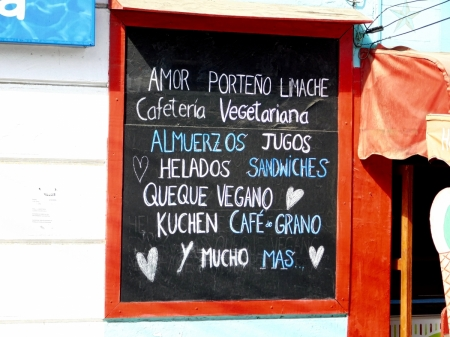 AMOR PORTEÑO LIMACHE
Cafetería Vegetariana
ALMUERZOS JUGOS
HELADOS SANDWICHES
QUEQUE VEGANO
KUCHEN CAFÉ DE GRANO
Y MUCHO MAS...